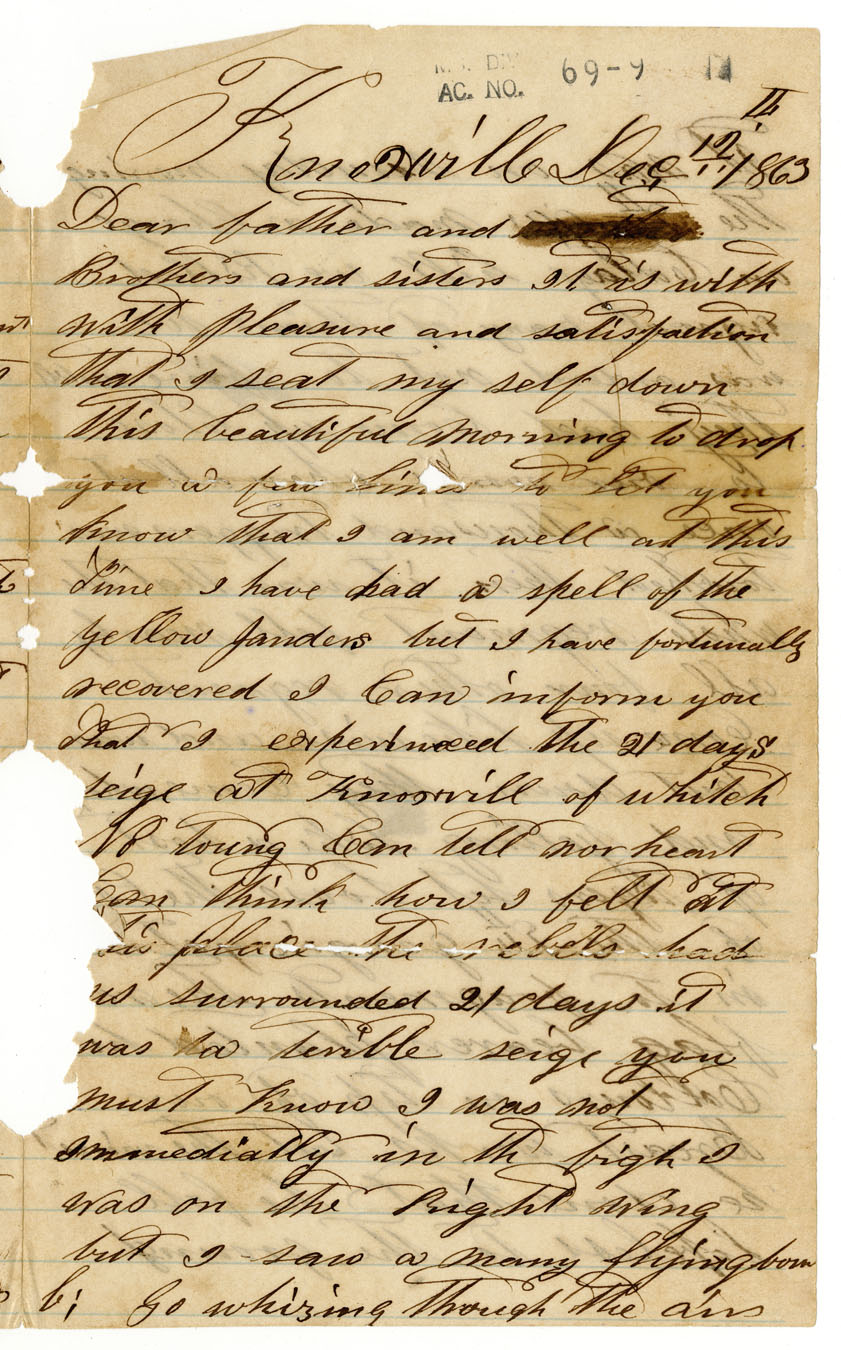 AC. NO. 69-9
Knoxvill Dec 12 1863
Dear father and
Brothers and sisters It is with
with pleasure and satisfaction
that I seat my self down
this beautiful morning to drop
you a few lines to let you
know that I am well at this
time I have had a spell of the
yellow Janders but I have fortunally
recovered I Can inform you
that I experinced the 21 days
seige at Knoxvill of whitch
No toung Can tell nor heart
Can think how I felt at
place the rebels had
us surrounded 21 days it
was a terible seige you
must know I was not
immedially in th figh I
was on the Right wing
but I saw a many flying bom
b; Go whizing though the air